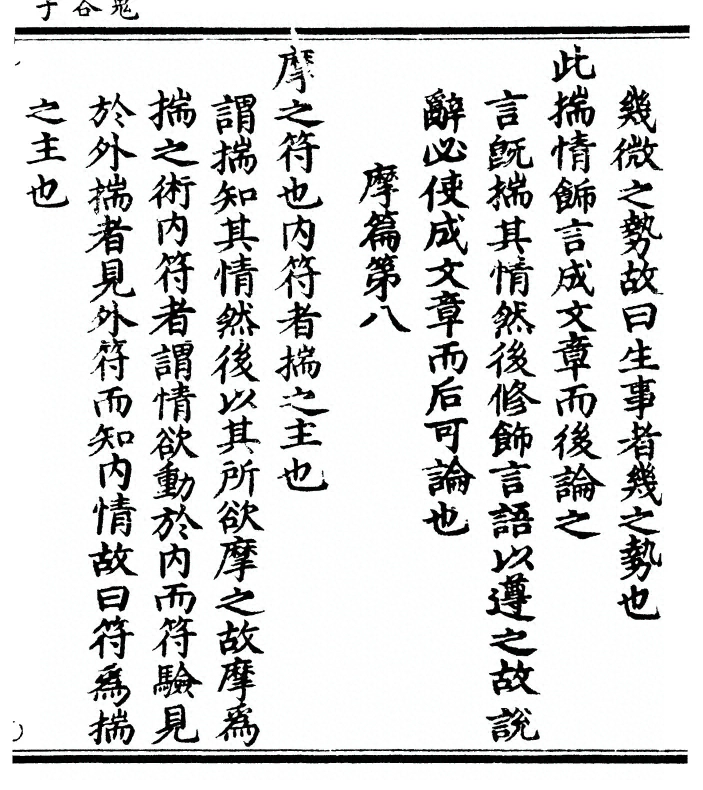 鬼谷子
幾微之勢故曰生事者幾之勢也
此揣情飾言成文章而後論之
言既揣其情然後修飾言語以遵之故說
辭必使成文章而后可論也
摩篇第八
摩之符也内符者揣之主也
謂揣知其情然後以其所欲摩之故摩爲
揣之術内符者謂情欲動於内而符驗見
於外揣者見外符而知内情故曰符爲揣
之主也